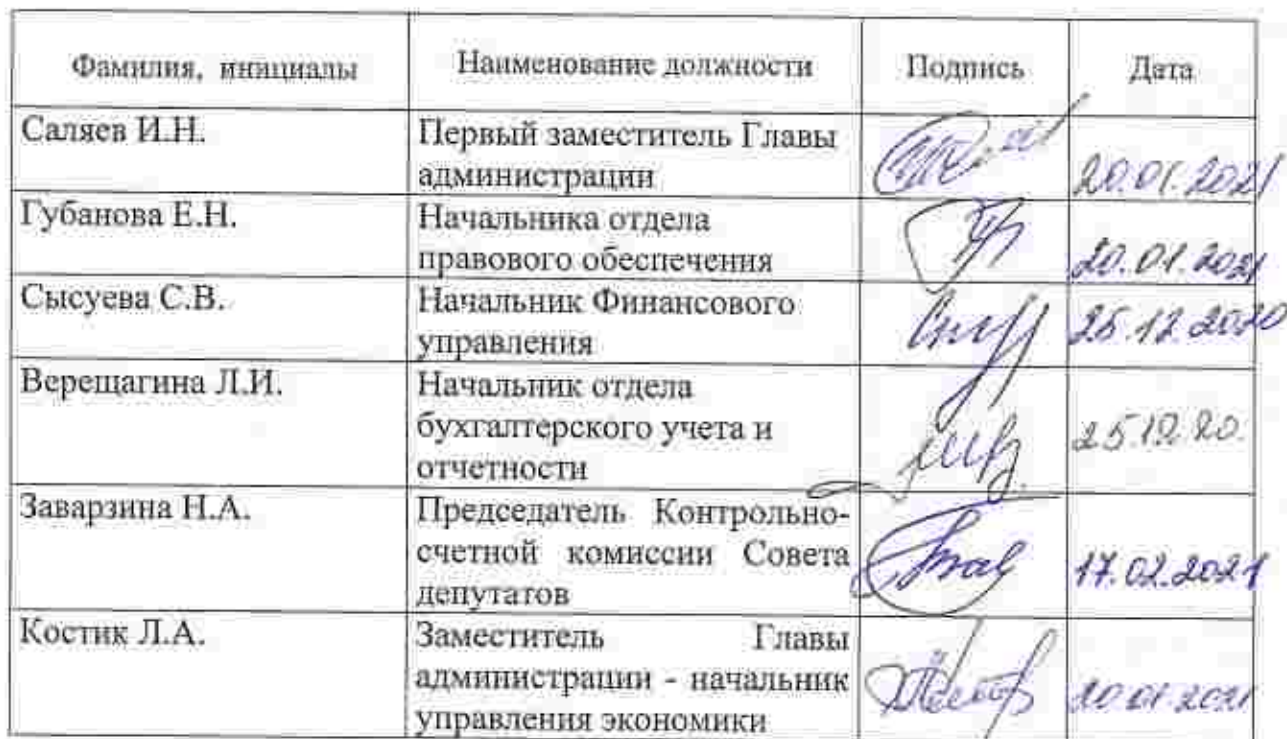 Фамилия, инициалы Наименование должности Подпись Дата
Саляев И.Н. Первый заместитель Главы
администрации 20.01.2021
Губанова Е.Н. Начальника отдела
правового обеспечения 20.01.2021
Сысуева С.В. Начальник Финансового 25.12.2020
управления
Верещагина Л.И. Начальник отдела
бухгалтерского учета и 25.12.20.
отчетности
Заварзина Н.А. Председатель Контрольно-
счетной комиссии Совета 17.02.2021
депутатов
Костик Л.А. Заместитель Главы
администрации - начальник 20.01.2021
управления экономики